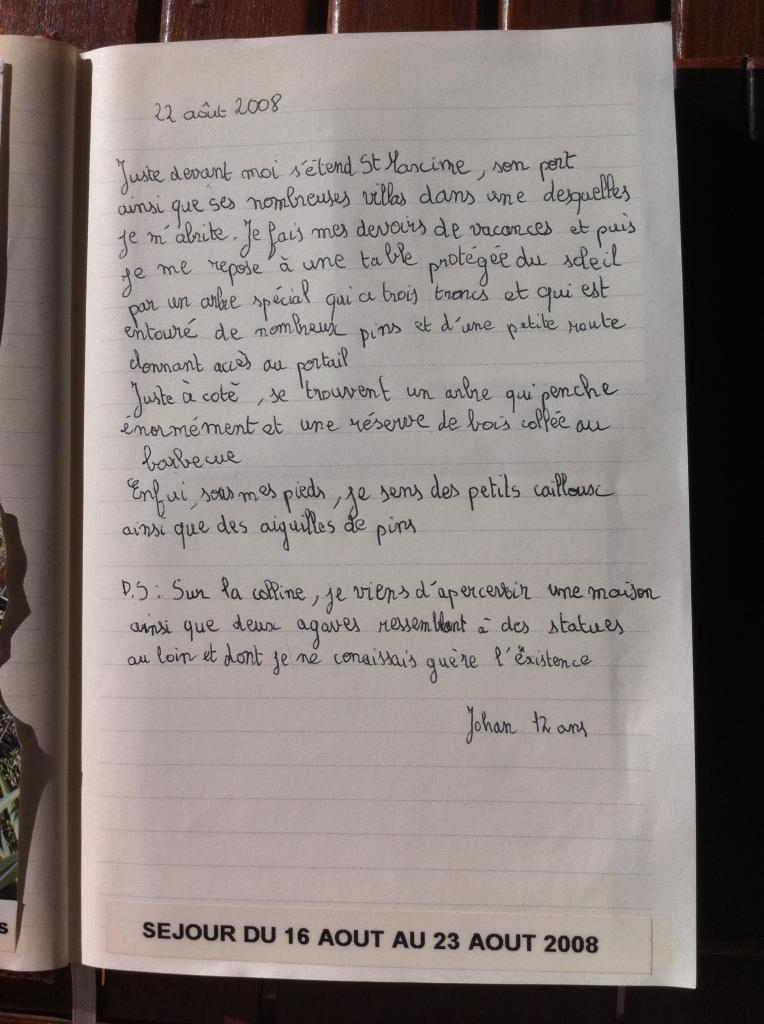 22 août 2008
Juste devant moi s'étend St Maxime, son port
ainsi que ses nombreuses villas dans une desquelles
je m'abrite. Je fais mes devoirs de vacances et puis
je me repose à une table protégée du soleil
par un arbre spécial qui a trois troncs et qui est
entouré de nombreux pins et d'une petite route
donnant accès au portail
Juste à coté, se trouvent un arbre qui penche
énormément et une réserve de bois collée au
barbecue
Enfui, sous mes pieds, je sens des petits cailloux
ainsi que des aiguilles de pins
P.S : Sur la colline, je viens d'apercevoir une maison
ainsi que deux agaves ressemblant à des statues
au loin et dont je ne conaissais guère l'éxistence
Johan 12 ans
SEJOUR DU 16 AOUT AU 23 AOUT 2008
S